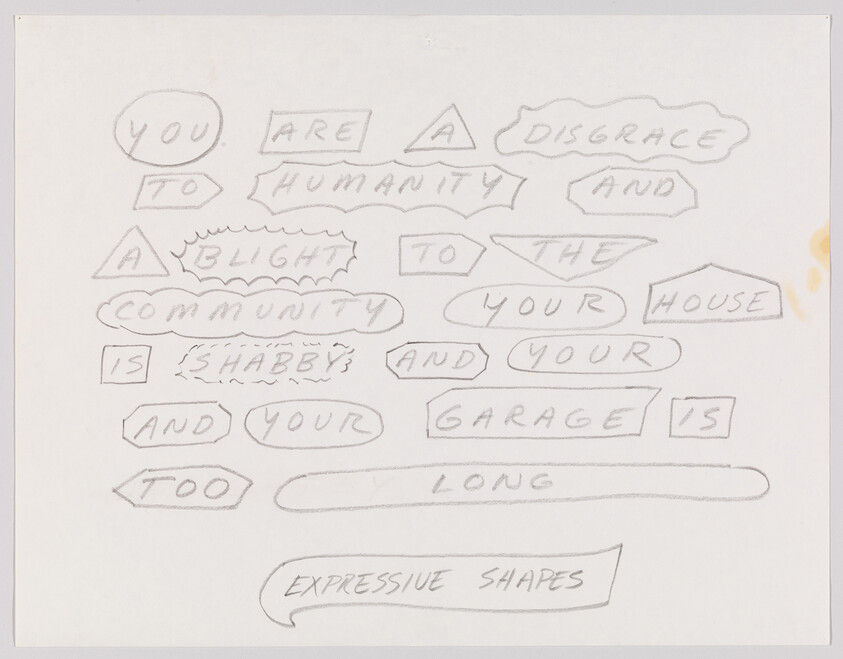 YOU ARE A DISGRACE
TO HUMANITY AND
A BLIGHT TO THE
COMMUNITY YOUR HOUSE
IS SHABBY AND YOUR
AND YOUR GARAGE IS
TOO LONG
EXPRESSIVE SHAPES